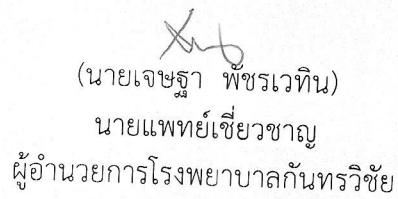 (นายเจษฐา พัชรเวทิน)
นายแพทย์เชี่ยวชาญ
ผู้อำนวยการโรงพยาบาลกันทรวิชัย